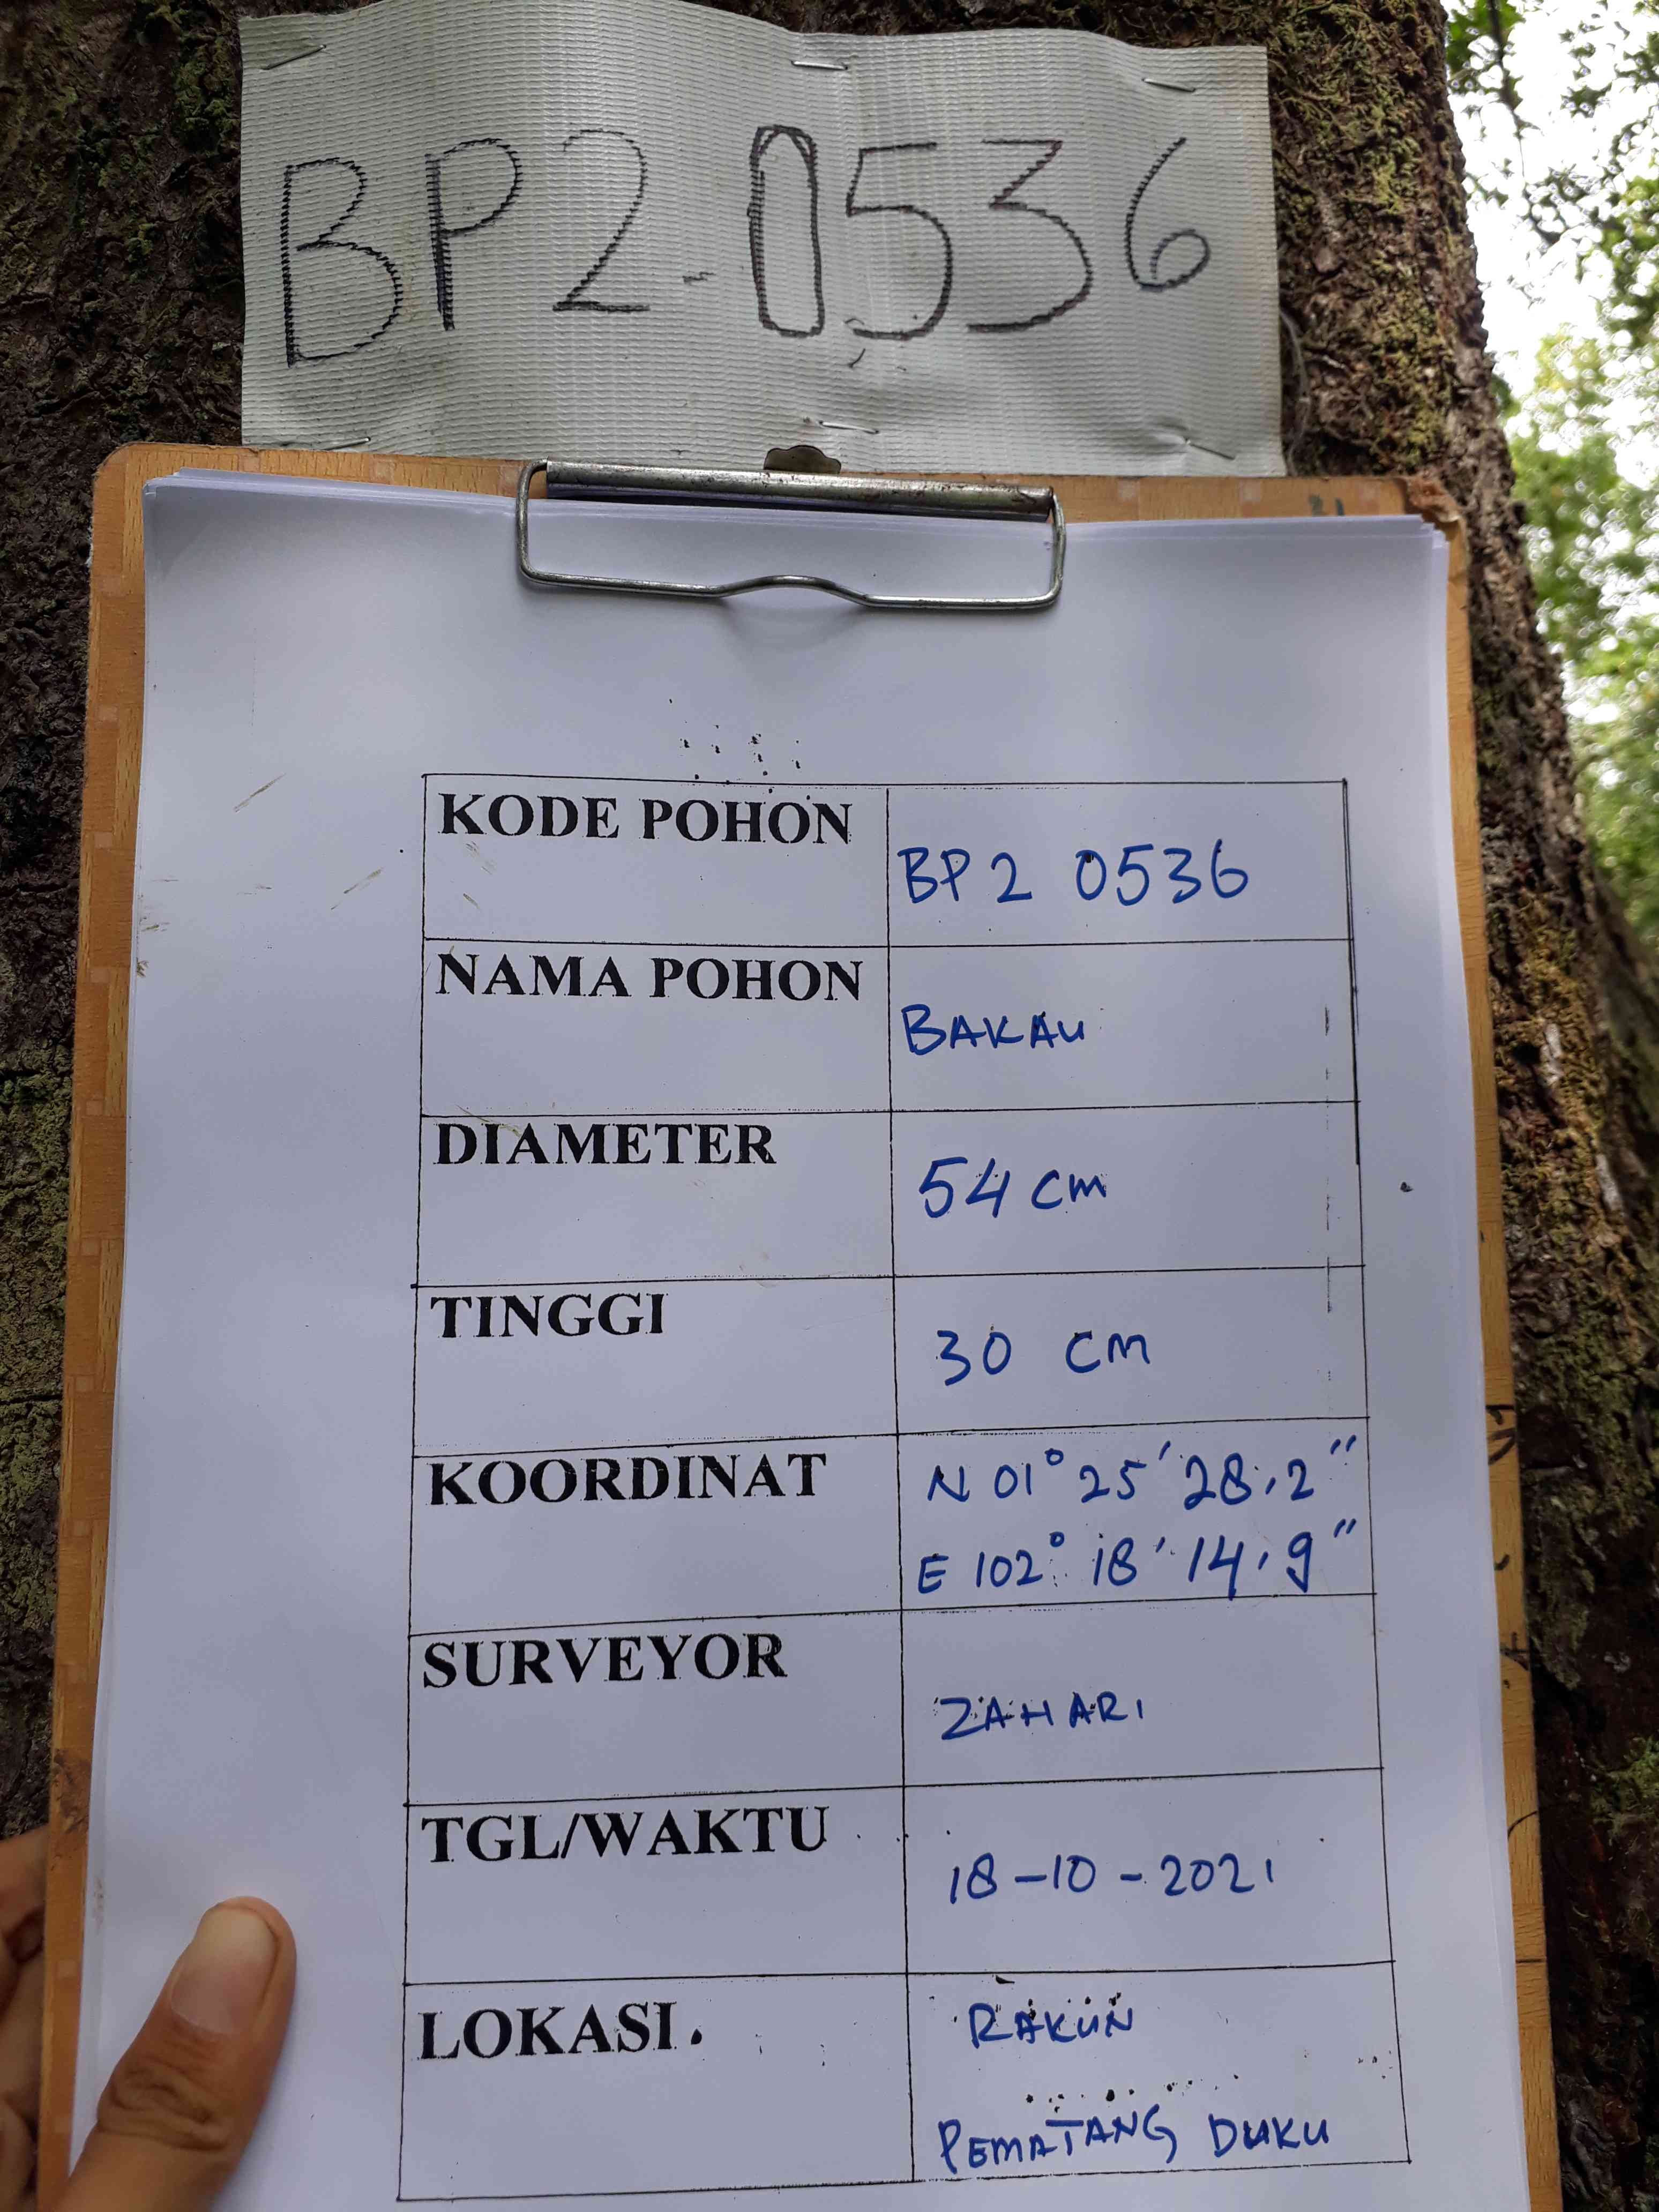 BP2-0536
KODE POHON
BP2 0536
NAMA POHON
BAKAU
DIAMETER
54 cm
TINGGI
30 cm
KOORDINAT
N 01° 25' 28,2"
E 102° 18' 14,9"
SURVEYOR
ZAHARI
TGL/WAKTU
18-10-2021
LOKASI.
RAKUN
PEMATANG DUKU